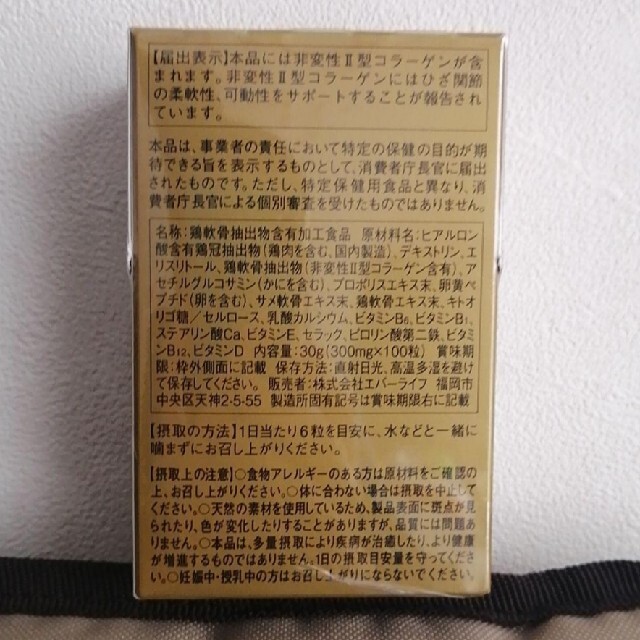 【届出表示】本品には非変性Ⅱ型コラーゲンが含
まれます。非変性Ⅱ型コラーゲンにはひざ関節
の柔軟性、可動性をサポートすることが報告され
ています。
本品は、事業者の責任において特定の保健の目的が期
待できる旨を表示するものとして、消費者庁長官に届出
されたものです。ただし、特定保健用食品と異なり、消
費者庁長官による個別審査を受けたものではありません。
名称:鶏軟骨抽出物含有加工食品 原材料名:ヒアルロン
酸含有鶏冠抽出物(鶏肉を含む、国内製造)、デキストリン、エ
リスリトール、鶏軟骨抽出物(非変性Ⅱ型コラーゲン含有)、ア
セチルグルコサミン(かにを含む)、プロポリスエキス末、卵黄ペ
プチド(卵を含む)、サメ軟骨エキス末、鶏軟骨エキス末、キトオ
リゴ糖/セルロース、乳酸カルシウム、ビタミンB₆、ビタミンB₁、
ステアリン酸Ca、ビタミンE、セラック、ピロリン酸第二鉄、ビタミ
ンB₁₂、ビタミンD 内容量:30g(300mg×100粒) 賞味期
限:枠外側面に記載 保存方法:直射日光、高温多湿を避け
て保存してください。 販売者:株式会社エバーライフ 福岡市
中央区天神2-5-55 製造所固有記号は賞味期限右に記載
【摂取の方法】1日当たり6粒を目安に、水などと一緒に
噛まずにお召し上がりください。
【摂取上の注意】○食物アレルギーのある方は原材料をご確認の
上、お召し上がりください。○体に合わない場合は摂取を中止して
ください。○天然の素材を使用しているため、製品表面に斑点が見
られたり、色が変化したりすることがありますが、品質には問題あ
りません。○本品は、多量摂取により疾病が治癒したり、より健康
が増進するものではありません。1日の摂取目安量を守ってくださ
い。○妊娠中・授乳中の方はお召し上がりにならないでください。